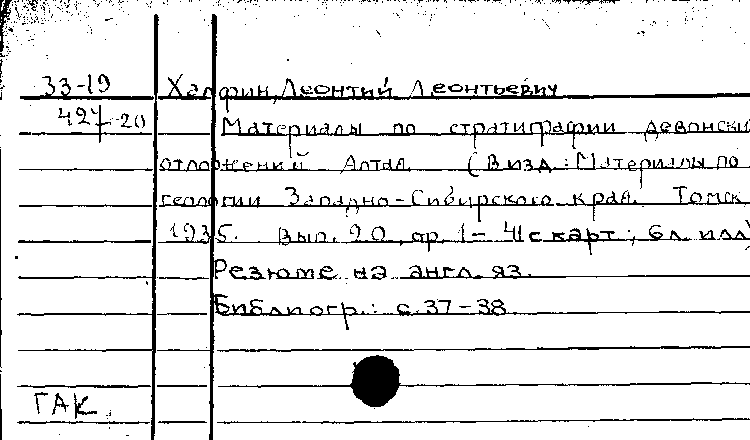 33-19 Халфин, Леонтий Леонтьевич
427-20 Материалы по стратиграфии девонски
отложений Алтая. (В изд.: Материалы по
геологии Западно-Сибирского края. Томск
1935. Вып. 20, стр. 1-41 с карт.; 6 л. илл)
Резюме на англ. яз.
Библиогр.: с. 37-38.
ГАК